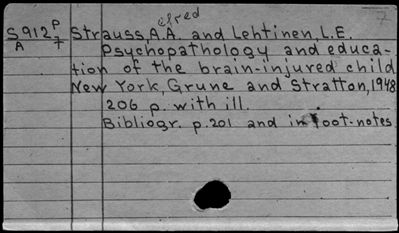 S912 P Strauss, A.A. and Lehtinen, L.E.
A T Psychopathology and educa-
tion of the brain-injured child
New York, Grune and Stratton, 1948
206 p. with ill.
Bibliogr. p.201 and in foot-notes